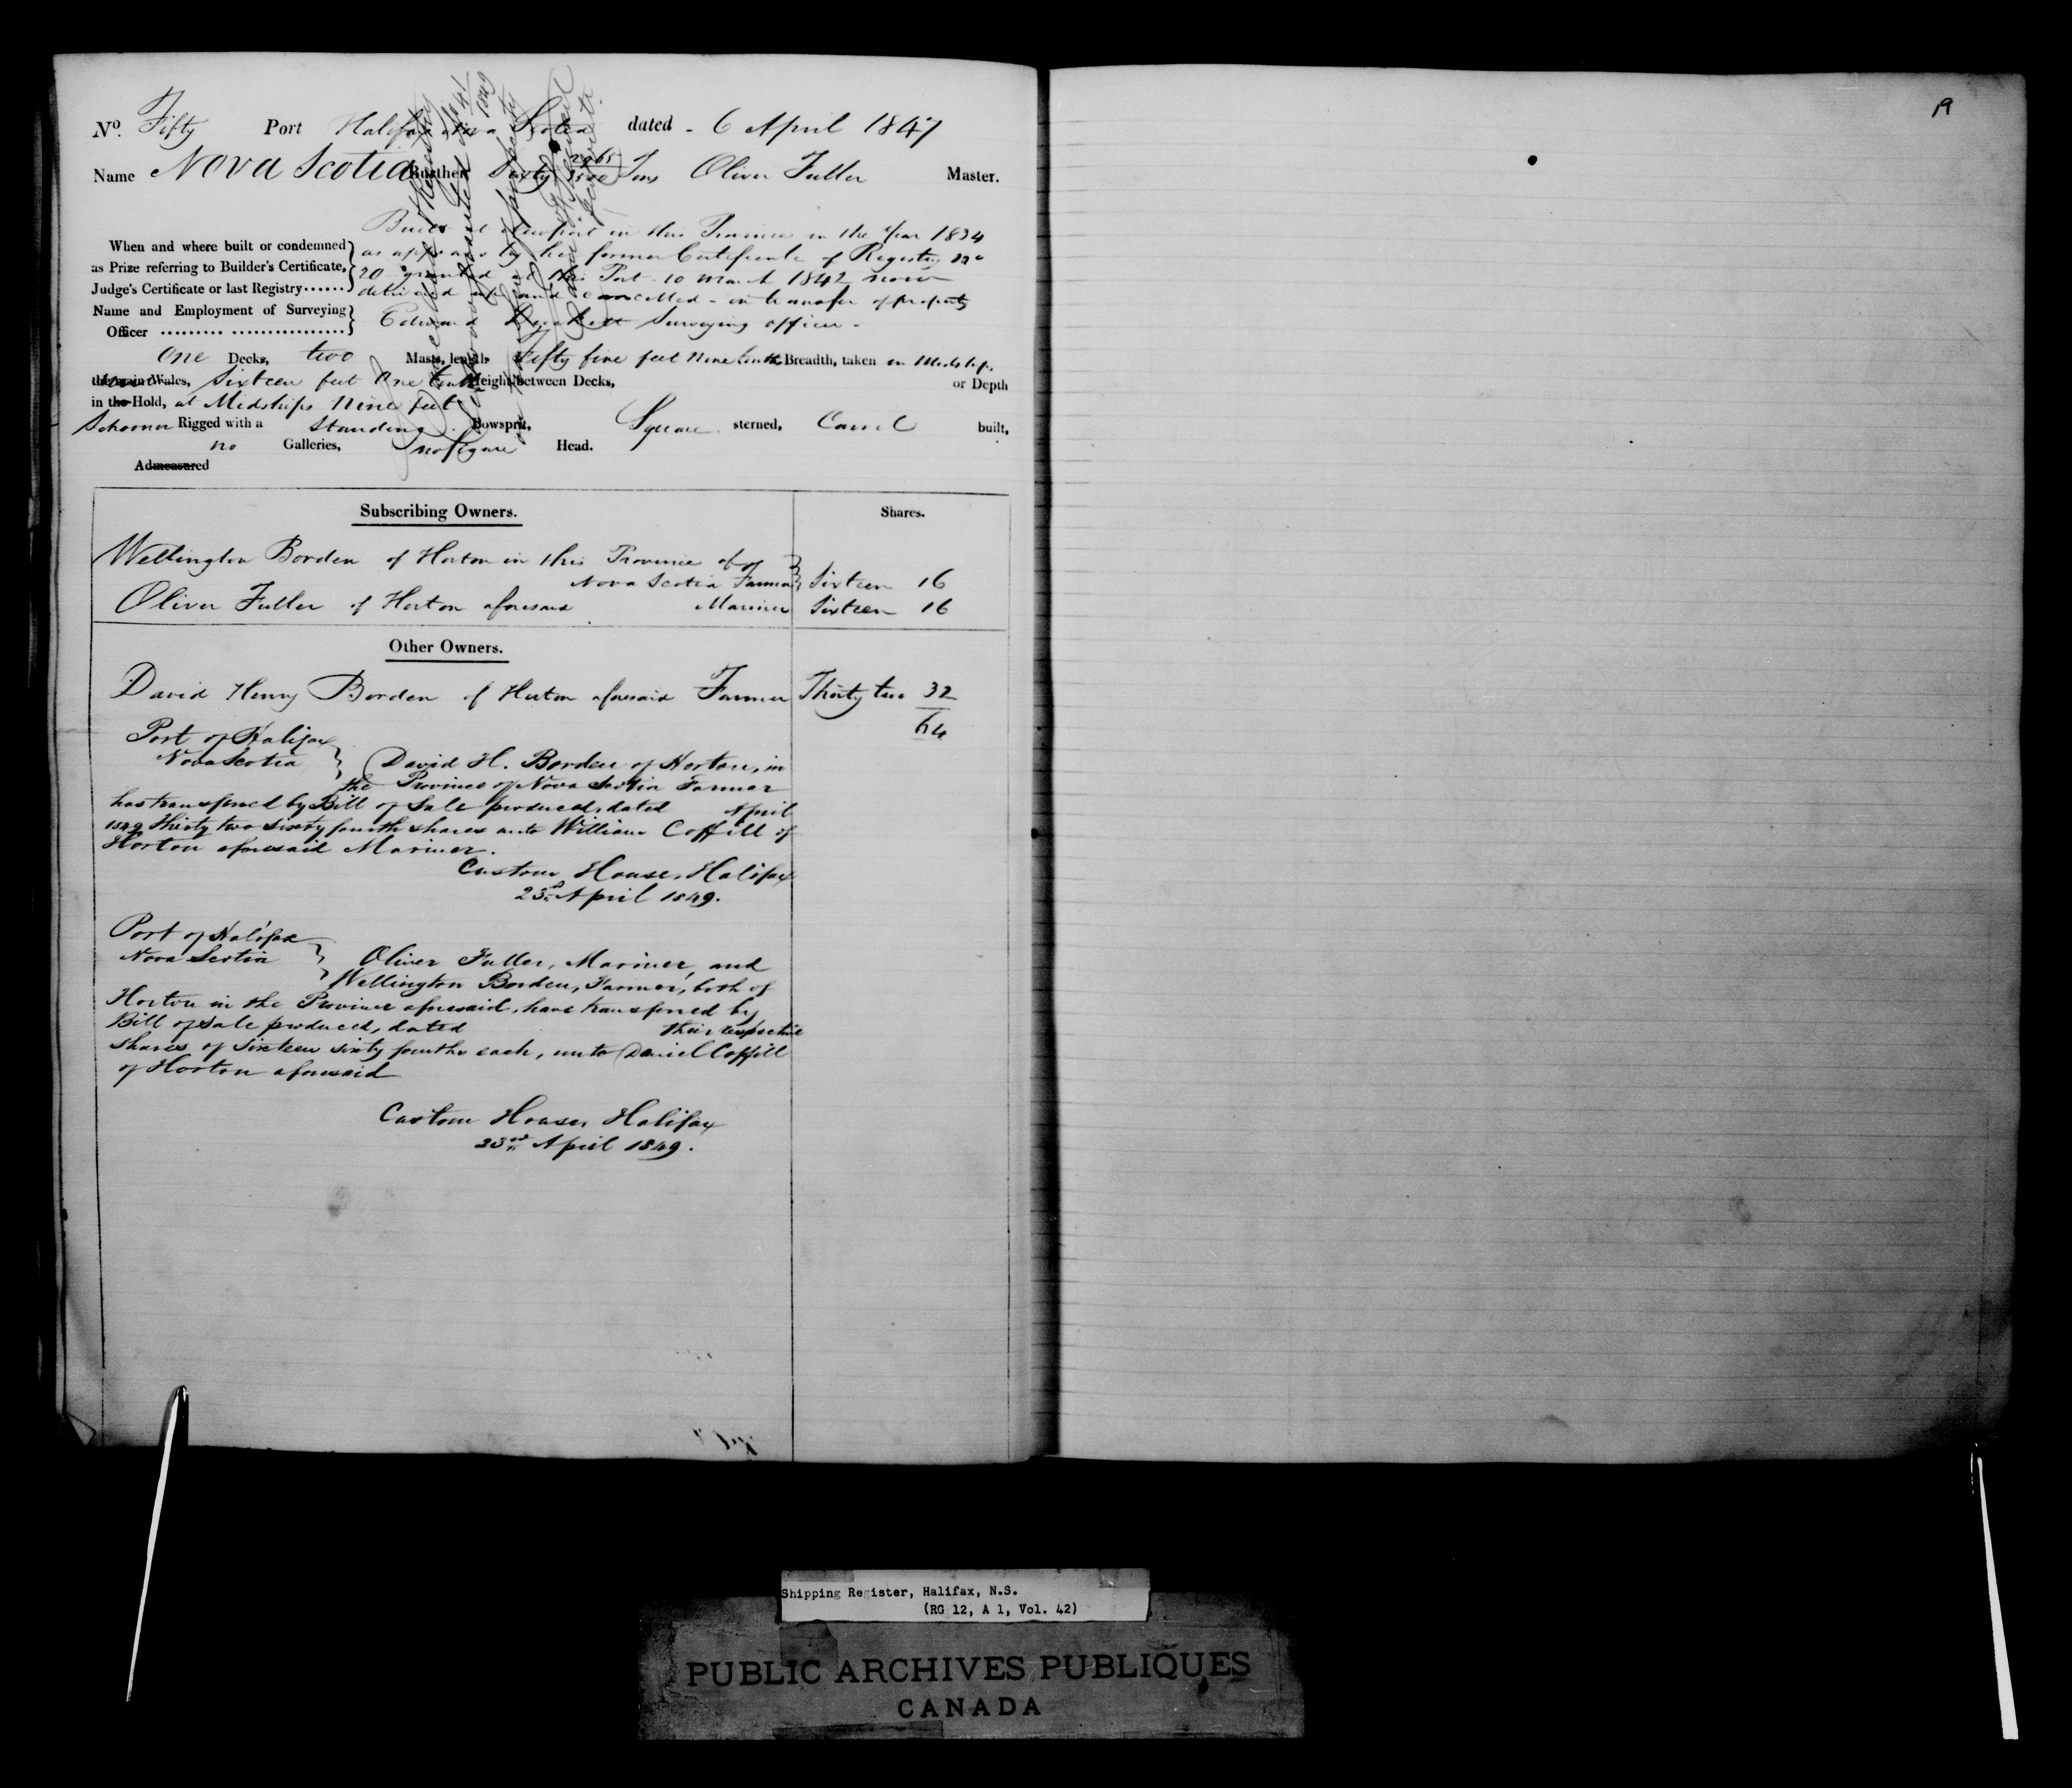 19
No. Fifty Port Halifax Nova Scotia dated - 6 April 1847
Name Nova Scotia Burthen Sixty 2965/3500 Tons Oliver Fuller Master.
Built at Newport in this Province in the Year 1834
When and where built or condemned as appears by her former Certificate of Registry No
as Prize referring to Builder's Certificate, 20 granted at this Port 10 March 1842 now
Judge's Certificate or last Registry...... delivered up and cancelled - on transfer of property
Name and Employment of Surveying Edward Surveying officer -
Officer ......... ................
One Decks, two Masts, length Fifty five feet Nine tenths Breadth, taken in Midships
the main Wales, Sixteen feet One tenth Height between Decks, or Depth
in the Hold, at Midships Nine feet
Schooner Rigged with a Standing Bowsprit, Square sterned, Carvel built,
no Galleries, no figure Head.
Admeasured
Subscribing Owners. Shares.
Wellington Borden of Horton in this Province of
Nova Scotia Farmer Sixteen 16
Oliver Fuller of Horton aforesaid Mariner Sixteen 16
Other Owners.
David Henry Borden of Horton aforesaid Farmer Thirty two 32
64
Port of Halifax
Nova Scotia } David H. Borden of Horton, in
the Province of Nova Scotia Farmer
has transferred by Bill of Sale produced, dated April
1849 Thirty two sixty fourth shares unto William Coffill of
Horton aforesaid Mariner.
Custom House, Halifax
23d April 1849.
Port of Halifax
Nova Scotia } Oliver Fuller, Mariner, and
Wellington Borden, Farmer, both of
Horton in the Province aforesaid, have transferred by
Bill of Sale produced, dated their respective
shares of Sixteen sixty fourths each, unto Daniel Coffill
of Horton aforesaid
Custom House, Halifax
23rd April 1849.
Shipping Register, Halifax, N.S.
(RG 12, A 1, Vol. 42)
PUBLIC ARCHIVES PUBLIQUES
CANADA